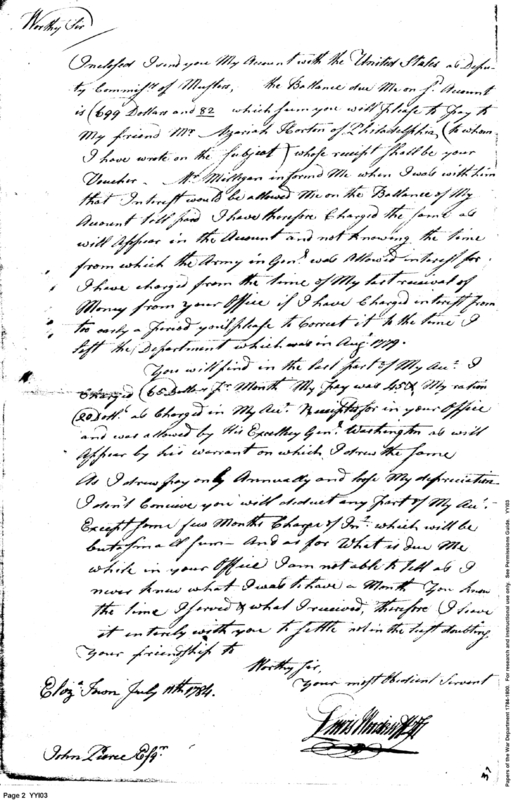 Worthy Sir
Inclosed I send you My Account with the United States as Depu-
ty Commisr. of Musters, the Ballance due Me on sd. Account
is (699 Dollars and 82 which sum you will please to pay to
My friend Mr. Azariah Horton of Philadelphia (to whom
I have wrote on the Subject) whose receipt shall be your
Voucher. Mr. Milligan informd Me when I was with him
that Interest would be allowed Me on the Ballance of My
Account till paid I have therefore Charged the same as
will appear in the Account and not knowing the time
from which the Army in Genl. was Allowed interest for
I have charged from the time of My last receival of
Money from your Office if I have Charged interest from
too early a Period you'l please to Correct it to the time I
left the Department which was in Augt. 1779.
You will find in the last part of My Act. I
Charged (65 Dollars Pr. Month My pay was 45 & My ration
(20 Dolls. as Charged in My Act. Receipts for in your Office
and was allowed by His Excellency Genl. Washington as will
Appear by his warrant on which I drew the same
As I drew pay only Annually and lose My depreciation
I don't Conceive you will deduct any part of My Act.
Except some few Months Charge of Int. which will be
but a small sum— And as for What is due Me
while in your Office I am not able to tell as I
never knew what I was to have a Month You know
the time I served & what I received, therefore I leave
it entirely with you to settle not in the least doubting
your friendship to
Worthy Sir,
Your most Obedient Servant
Eliza. Town July 11th. 1784.
John Pierce Esqr.
37
Page 2 YYI03
Papers of the War Department 1784-1800. For research and instructional use only. See Permissions Guide. YYI03